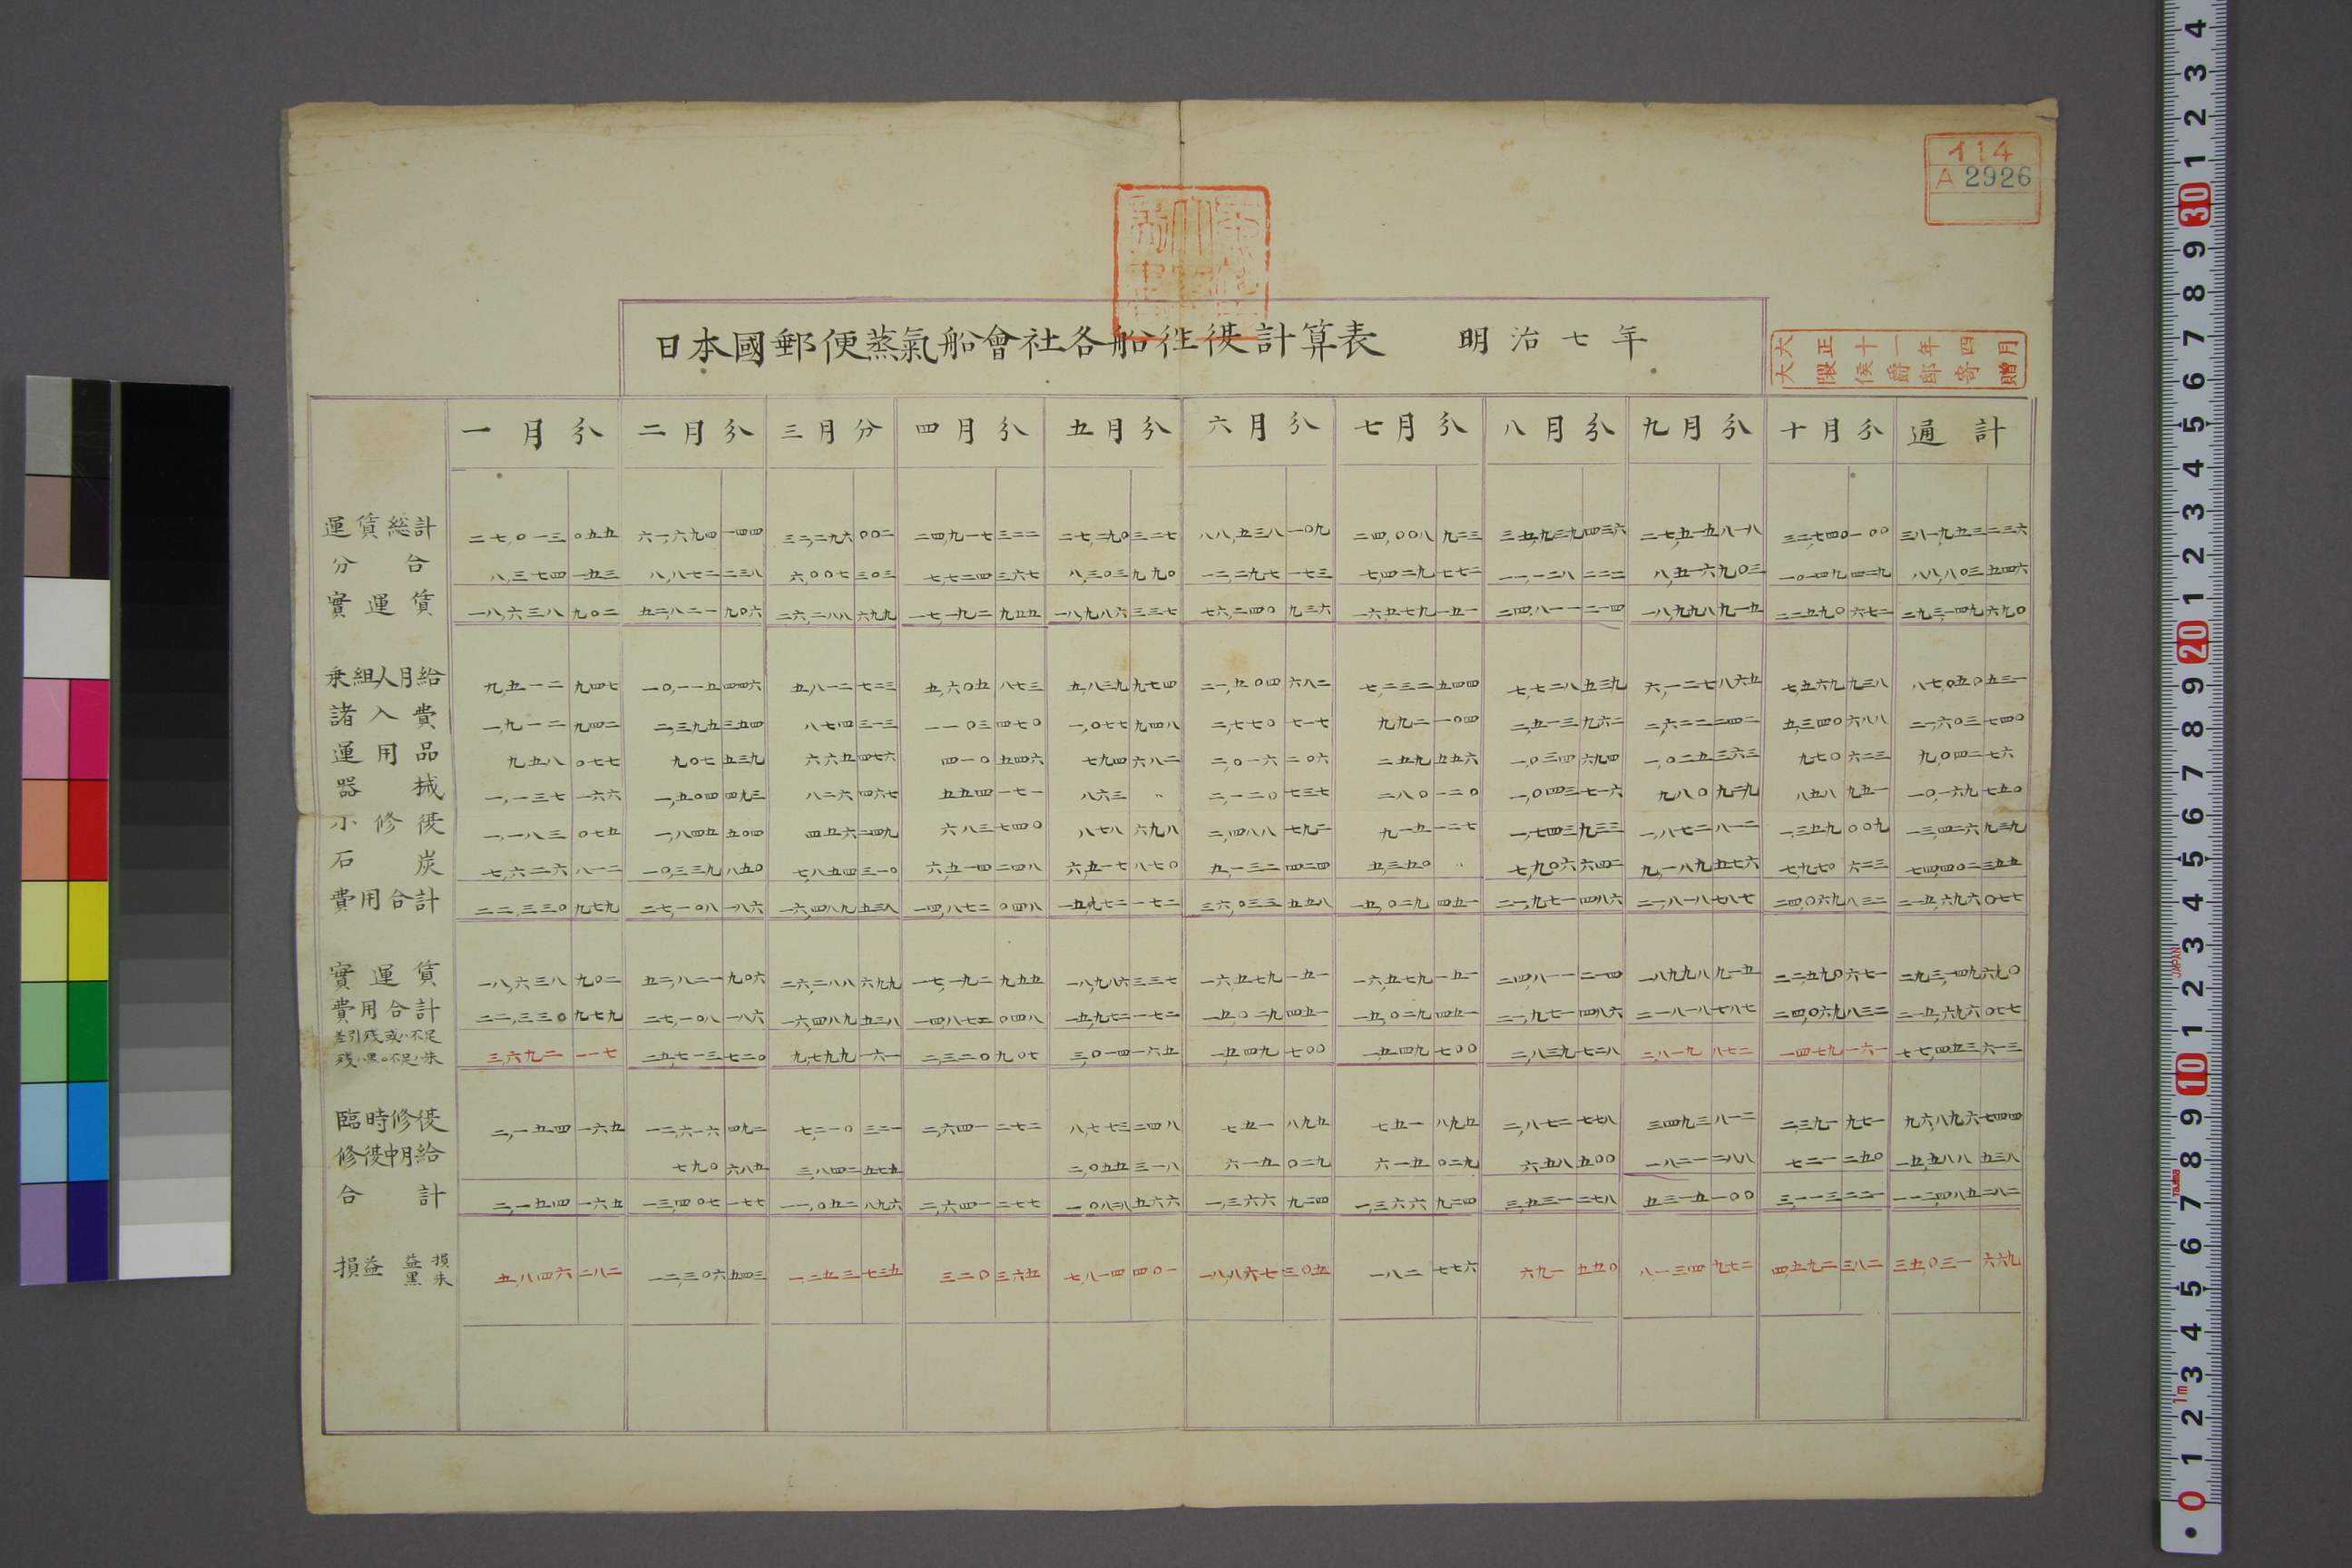 イ14
A 2926
日本國郵便蒸氣船會社各船徃復計算表 明治七年
大正十一年四月
大隈侯爵郎寄贈
一月分 二月分 三月分 四月分 五月分 六月分 七月分 八月分 九月分 十月分 通計
運賃総計 二七,〇一三 〇五五 六一,六九四 一四四 三二,二九六 〇〇二 二四,九一七 三二二 二七,二九〇 三二七 八八,五三八 一〇九 二四,〇〇八 九二三 三五,九三九 四三六 二七,五一五 八一八 三二,七四〇 一〇〇 三八一,九五三 二三六
分合 八,三七四 一五三 八,八七二 二三八 六,〇〇七 三〇三 七,七二四 三六七 八,三〇三 九九〇 一二,二九七 一七三 七,四二九 七七二 一一,一二八 二二二 八,五一六 九〇三 一〇一四九 四二九 八八,八〇三 五四六
實運賃 一八,六三八 九〇二 五二,八二一 九〇六 二六,二八八 六九九 一七,一九二 九五五 一八,九八六 三三七 七六,二四〇 九三六 一六,五七九 一五一 二四,八一一 二一四 一八,九九八 九一五 二二五九〇 六七一 二九三,一四九 六九〇
乗組人月給 九,五一二 九四七 一〇,一一五 四四六 五,八一二 七二三 五,六〇五 八七三 五,八三九 九七四 二一,五〇四 六八二 七,二三二 五四四 七,七二八 五三九 六,一二七 八六五 七,五六九 九三八 八七,〇五〇 五三一
諸入費 一,九一二 九四二 二,三九五 三五四 八七四 三一三 一一〇三 四七〇 一,〇七七 九四八 二,七七〇 七一七 九九二 一〇四 二,五一三 九六二 二,六二二 二四二 五,三四〇 六八八 二一,六〇三 七四〇
運用品 九五八 〇七七 九〇七 五三九 六六五 四七六 四一〇 五四六 七九四 六八二 二,〇一六 二〇六 二五九 五五六 一,〇三四 六九四 一,〇二五 三六三 九七〇 六二三 九,〇四二 七六
器械 一,一三七 一六六 一,五〇四 四九三 八二六 四六七 五五四 一七一 八六三 〃 二,一二〇 七三七 二八〇 一二〇 一,〇四三 七一六 九八〇 九二九 八五八 九五一 一〇,一六九 七五〇
小修復 一,一八三 〇七五 一,八四五 五〇四 四五六 二四九 六八三 七四〇 八七八 六九八 二,四八八 七九二 九一五 一二七 一,七四三 九三三 一,八七二 八一二 一,三五九 〇〇九 一三,四二六 九三九
石炭 七,六二六 八一二 一〇,三三九 八五〇 七,八五四 三一〇 六,五一四 二四八 六,五一七 八七〇 九,一三二 四二四 五,三五〇 〃 七,九〇六 六四二 九,一八九 五七六 七,九七〇 六二三 七四,四〇二 三五五
費用合計 二二,三三〇 九七九 二七,一〇八 一八六 一六,四八九 五三八 一四,八七二 〇四八 一五,九七二 一七二 三六,〇三三 五五八 一五,〇二九 四五一 二一,九七一 四八六 二一,八一八 七八七 二四,〇六九 八三二 二一五,六九六 〇七七
實運賃 一八,六三八 九〇二 五二,八二一 九〇六 二六,二八八 六九九 一七,一九二 九五五 一八,九八六 三三七 一六,五七九 一五一 一六,五七九 一五一 二四,八一一 二一四 一八九九八 九一五 二二,五九〇 六七一 二九三,一四九 六九〇
費用合計 二二,三三〇 九七九 二七,一〇八 一八六 一六,四八九 五三八 一四,八七二 〇四八 一五,九七二 一七二 一五,〇二九 四五一 一五,〇二九 四五一 二一,九七一 四八六 二一八一八 七八七 二四,〇六九 八三二 二一五,六九六 〇七七
差引残或ハ不足
残ハ黒○不足ハ朱 三,六九二 一一七 二五,七一三 七二〇 九,七九九 一六一 二,三二〇 九〇七 三,〇一四 一六五 一五四九 七〇〇 一,五四九 七〇〇 二,八三九 七二八 二,八一九 八七二 一四七九 一六一 七七,四五三 六一三
臨時修復 二,一五四 一六五 一二,六一六 四九二 七,二一〇 三二一 二,六四一 二七二 八,七七三 二四八 七五一 八九五 七五一 八九五 二,八七二 七七八 三四九三 八一二 二,三九一 九七一 九六,八九六 七四四
修復中月給 七九〇 六八五 三,八四二 五七五 二,〇五五 三一八 六一五 〇二九 六一五 〇二九 六五八 五〇〇 一八二一 二八八 七二一 二五〇 一五,五八八 五三八
合計 二,一五四 一六五 一三,四〇七 一七七 一一,〇五二 八九六 二,六四一 二七七 一〇八二八 五六六 一,三六六 九二四 一,三六六 九二四 三,五三一 二七八 五三一五 一〇〇 三,一一三 二二一 一一二,四八五 二八二
損益 益黒 損朱 五,八四六 二八二 一二,三〇六 五四三 一,二五三 七三五 三二〇 三六五 七,八一四 四〇一 一八,八六七 三〇五 一八二 七七六 六九一 五五〇 八一三四 九七二 四,五九二 三八二 三五,〇三一 六六九